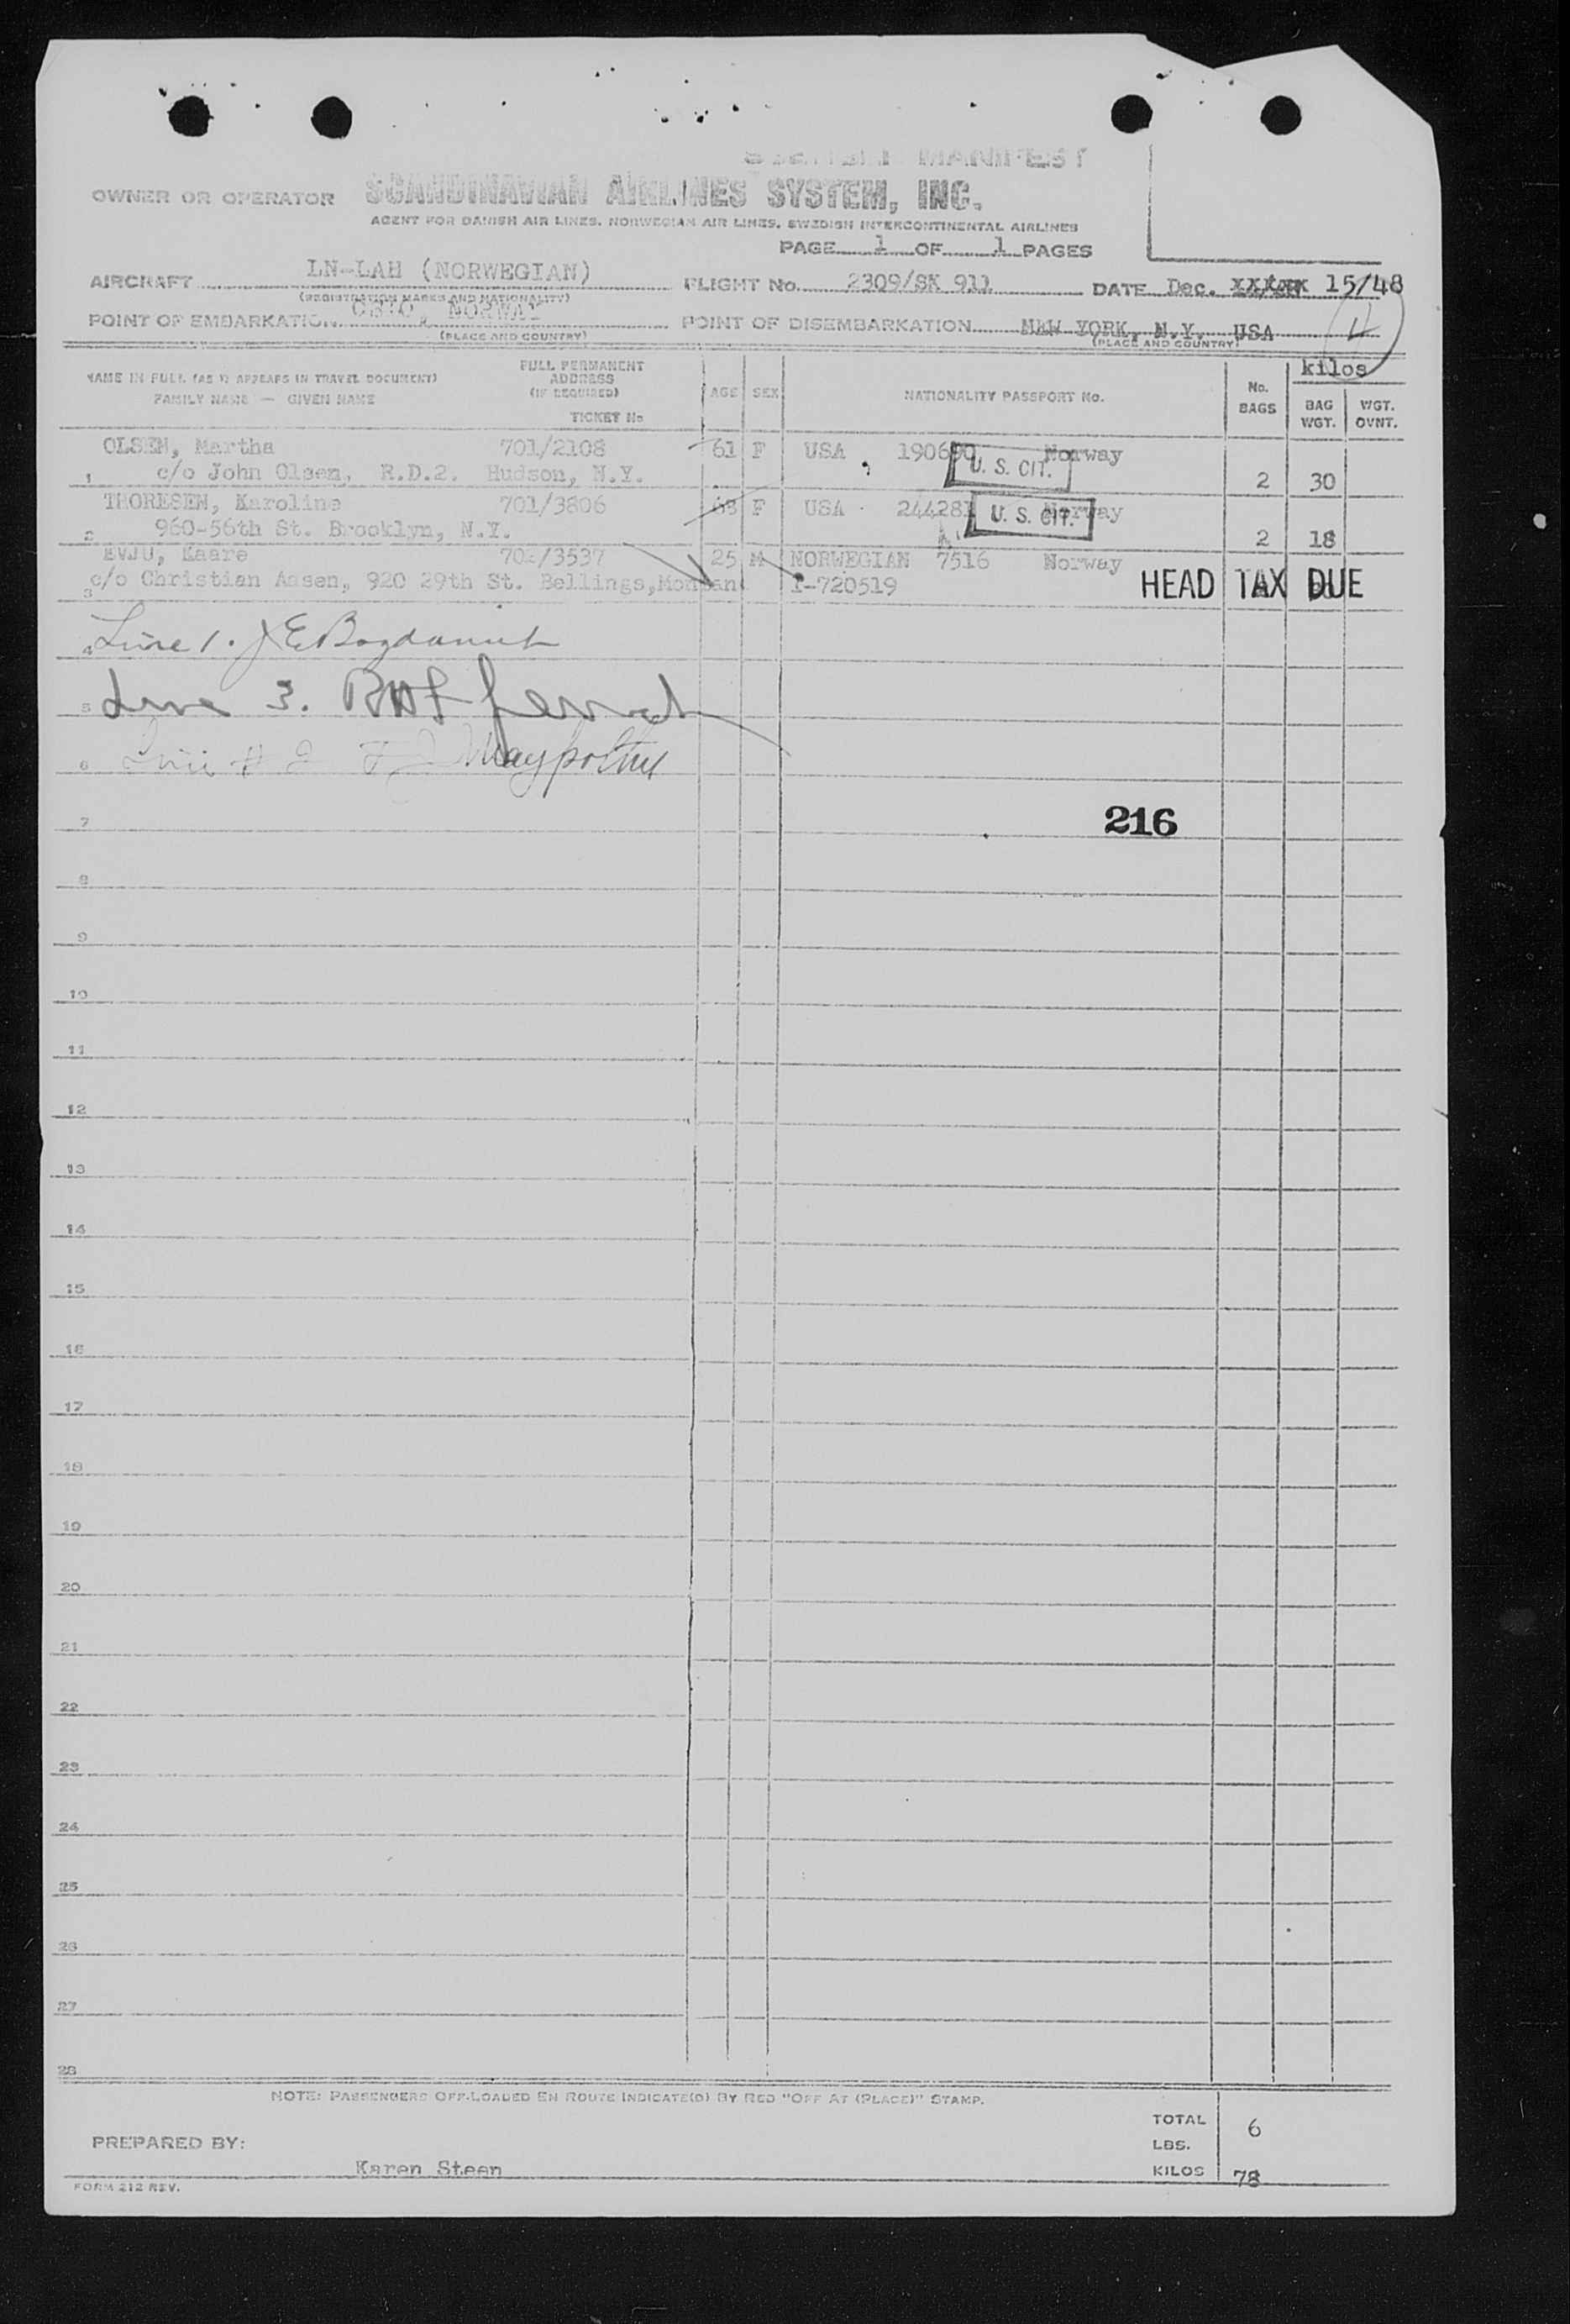 MANIFEST
OWNER OR OPERATOR SCANDINAVIAN AIRLINES SYSTEM, INC.
AGENT FOR DANISH AIR LINES, NORWEGIAN AIR LINES, SWEDISH INTERCONTINENTAL AIRLINES
PAGE 1 OF 1 PAGES
AIRCRAFT LN-LAH (NORWEGIAN) FLIGHT No. 2309/SK 911 DATE Dec. 15/48
(REGISTRATION MARKS AND NATIONALITY)
POINT OF EMBARKATION OSLO, NORWAY POINT OF DISEMBARKATION NEW YORK, N.Y. USA
(PLACE AND COUNTRY) (PLACE AND COUNTRY)
NAME IN FULL (AS IT APPEARS IN TRAVEL DOCUMENT) FULL PERMANENT ADDRESS (IF REQUIRED) AGE SEX NATIONALITY PASSPORT No. No. BAGS kilos
FAMILY NAME — GIVEN NAME TICKET No BAG WGT. WGT. OVNT.
OLSEN, Martha 701/2108 61 F USA 190690 Norway
1 c/o John Olsen, R.D.2. Hudson, N.Y. U. S. CIT. 2 30
THORESEN, Karoline 701/3806 68 F USA 244281 Norway
2 960-56th St. Brooklyn, N.Y. U. S. CIT. 2 18
EVJU, Kaare 701/3537 25 M NORWEGIAN 7516 Norway
3 c/o Christian Aasen, 920 29th St. Bellings, Montana I-720519 HEAD TAX DUE
4 Line 1. J E
5 Line 3.
6 Line # 2
7 216
8
9
10
11
12
13
14
15
16
17
18
19
20
21
22
23
24
25
26
27
28
NOTE: PASSENGERS OFF-LOADED EN ROUTE INDICATE(D) BY RED "OFF AT (PLACE)" STAMP.
TOTAL 6
PREPARED BY: LBS.
Karen Steen KILOS 78
FORM 212 REV.